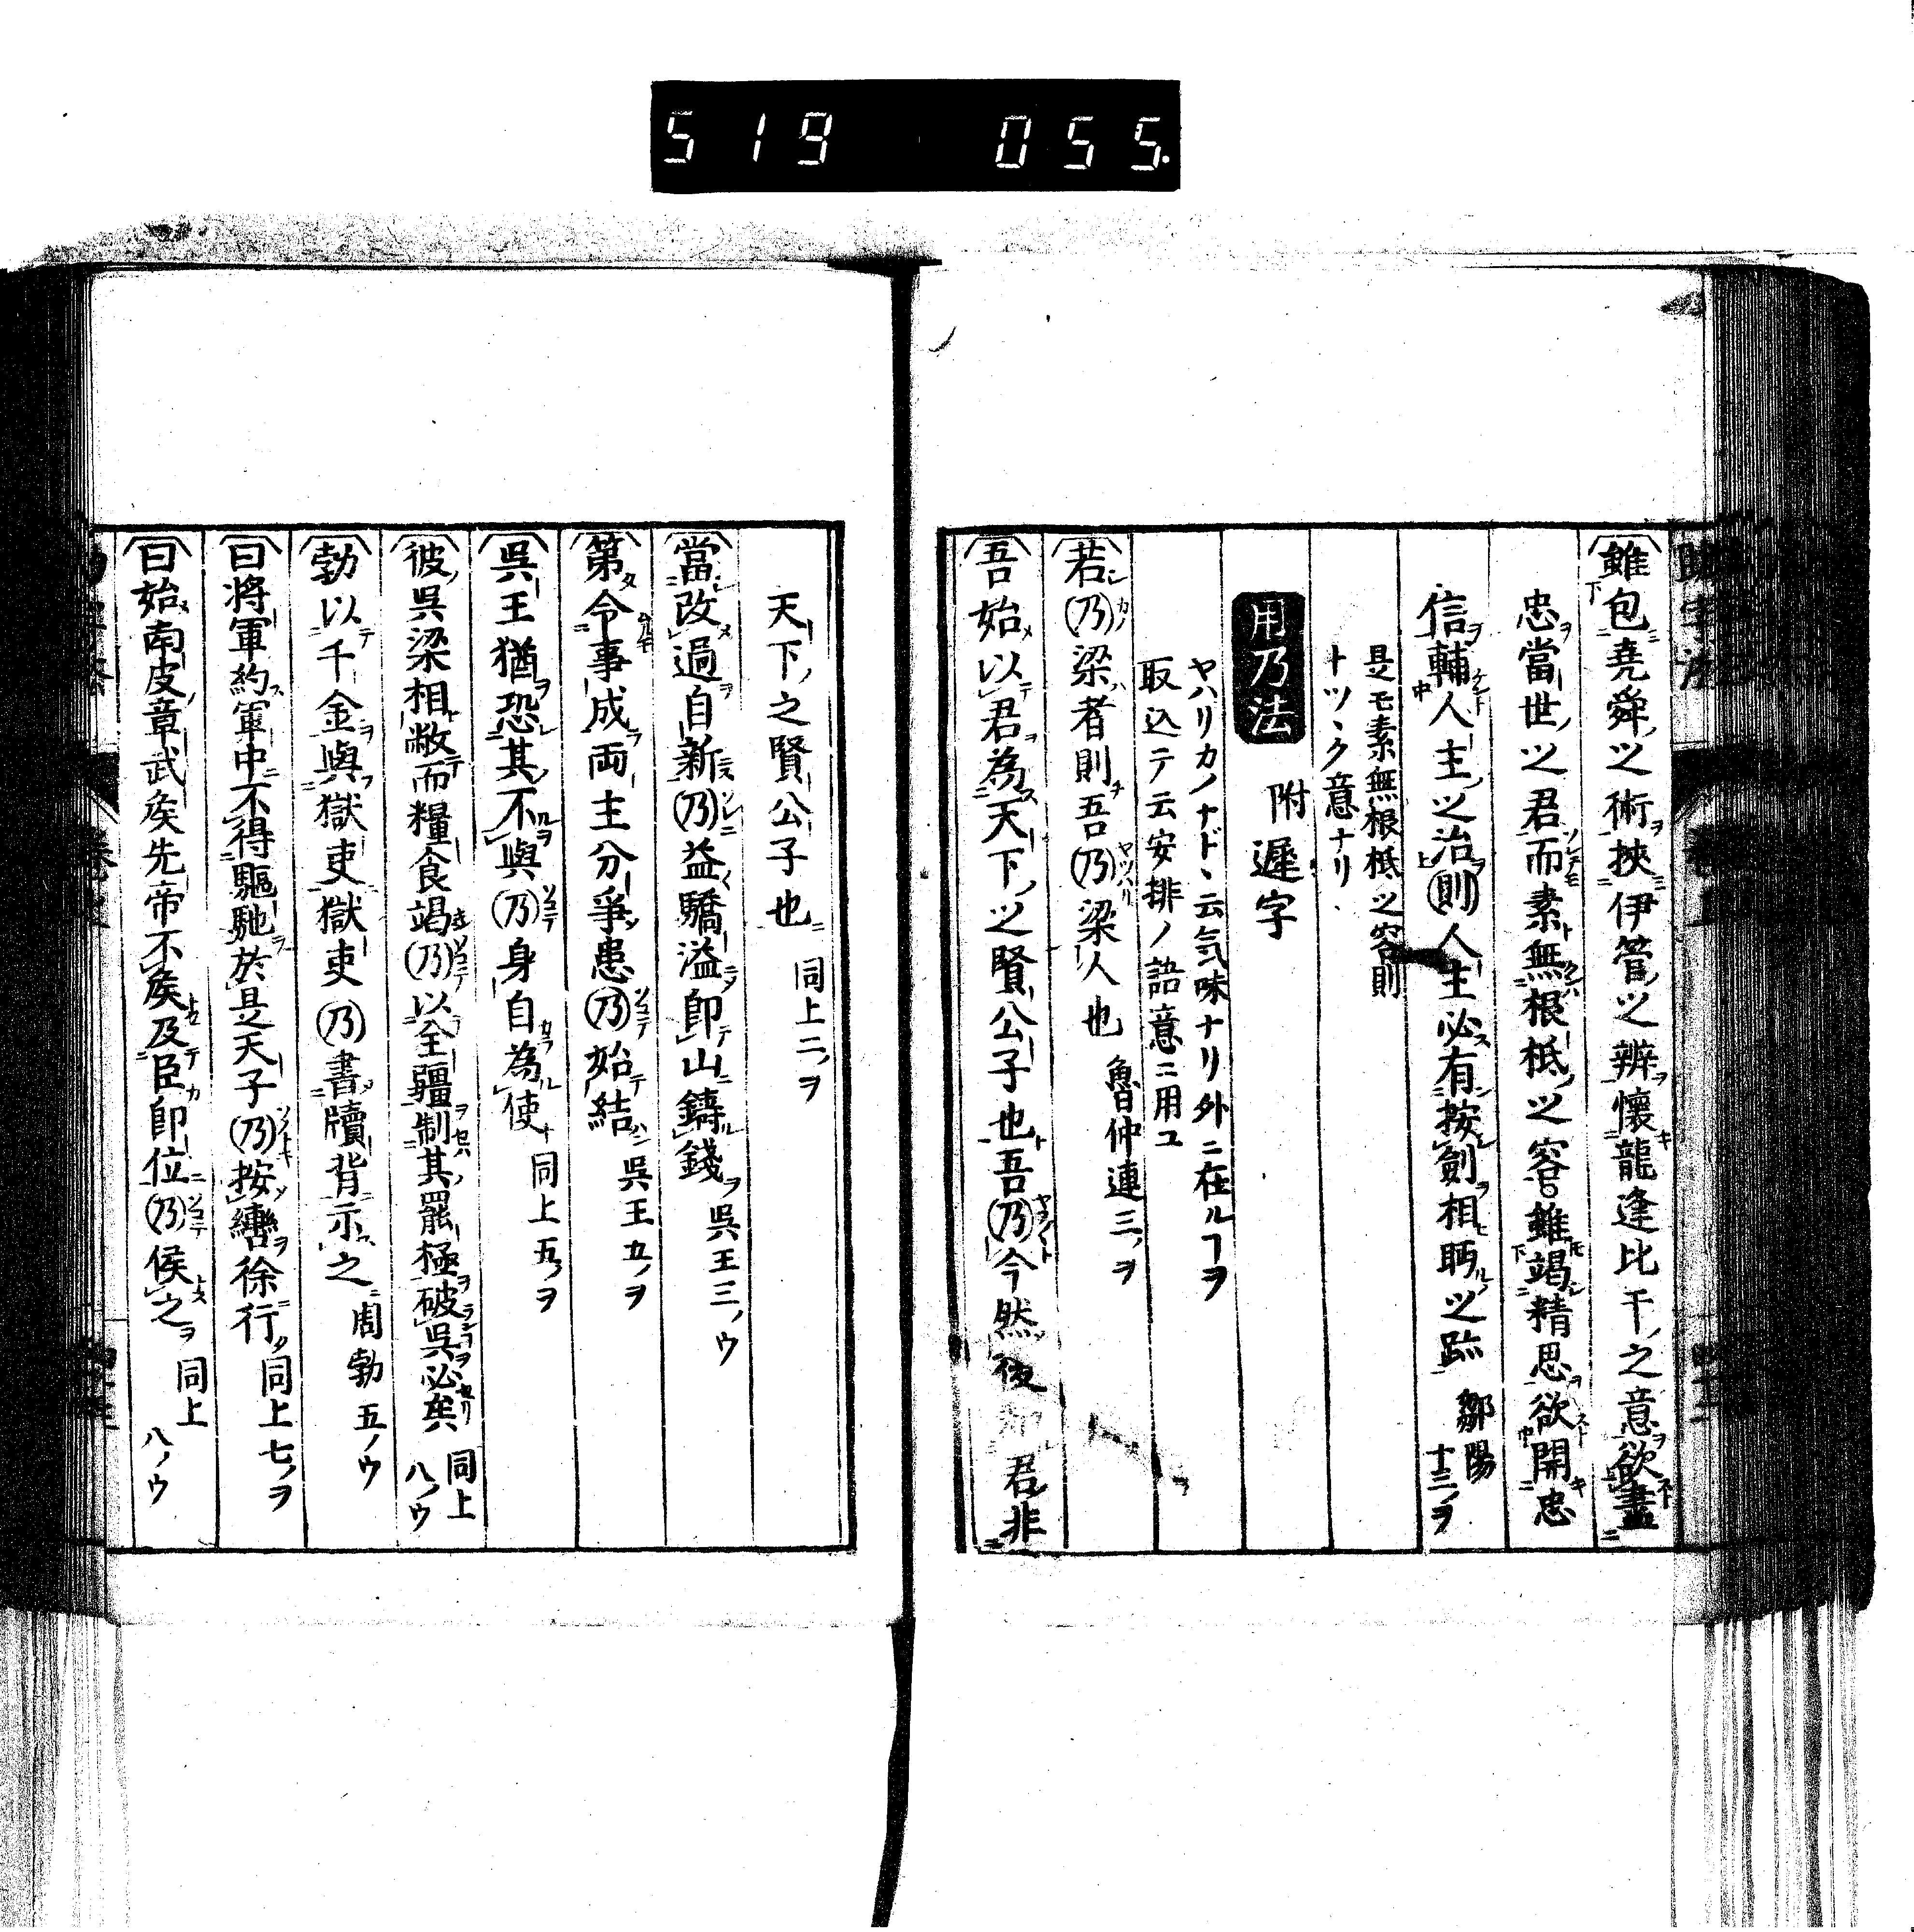 519 055.
雖包堯舜之術挾伊管之辨懷龍逢比干之意欲盡
忠當世之君而素無根柢之容雖竭精思欲開忠
信輔人主之治則人主必有按劍相眄之跡 鄒陽十三ノヲ
是モ素無根柢之容則
トツヽク意ナリ
用乃法 附遲字
ヤハリカノナドヽ云気味ナリ外ニ在ルヿヲ
取込テ云安排ノ語意ニ用ユ
若乃梁者則吾乃梁人也 魯仲連三ノヲ
吾始以君為天下之賢公子也吾乃今然後 君非
天下之賢公子也 同上二ノヲ
當改過自新乃益驕溢即山鑄錢 呉王三ノウ
第令事成両主分爭患乃始結 呉王五ノヲ
呉王猶恐其不與乃身自為使 同上五ノヲ
彼呉梁相敝而糧食竭乃以全彊制其罷極破呉必矣 同上八ノウ
勃以千金與獄吏獄吏乃書牘背示之 周勃五ノウ
曰將軍約軍中不得驅馳於是天子乃按轡徐行 同上七ノヲ
曰始南皮章武矦先帝不矦及臣即位乃侯之 同上八ノウ